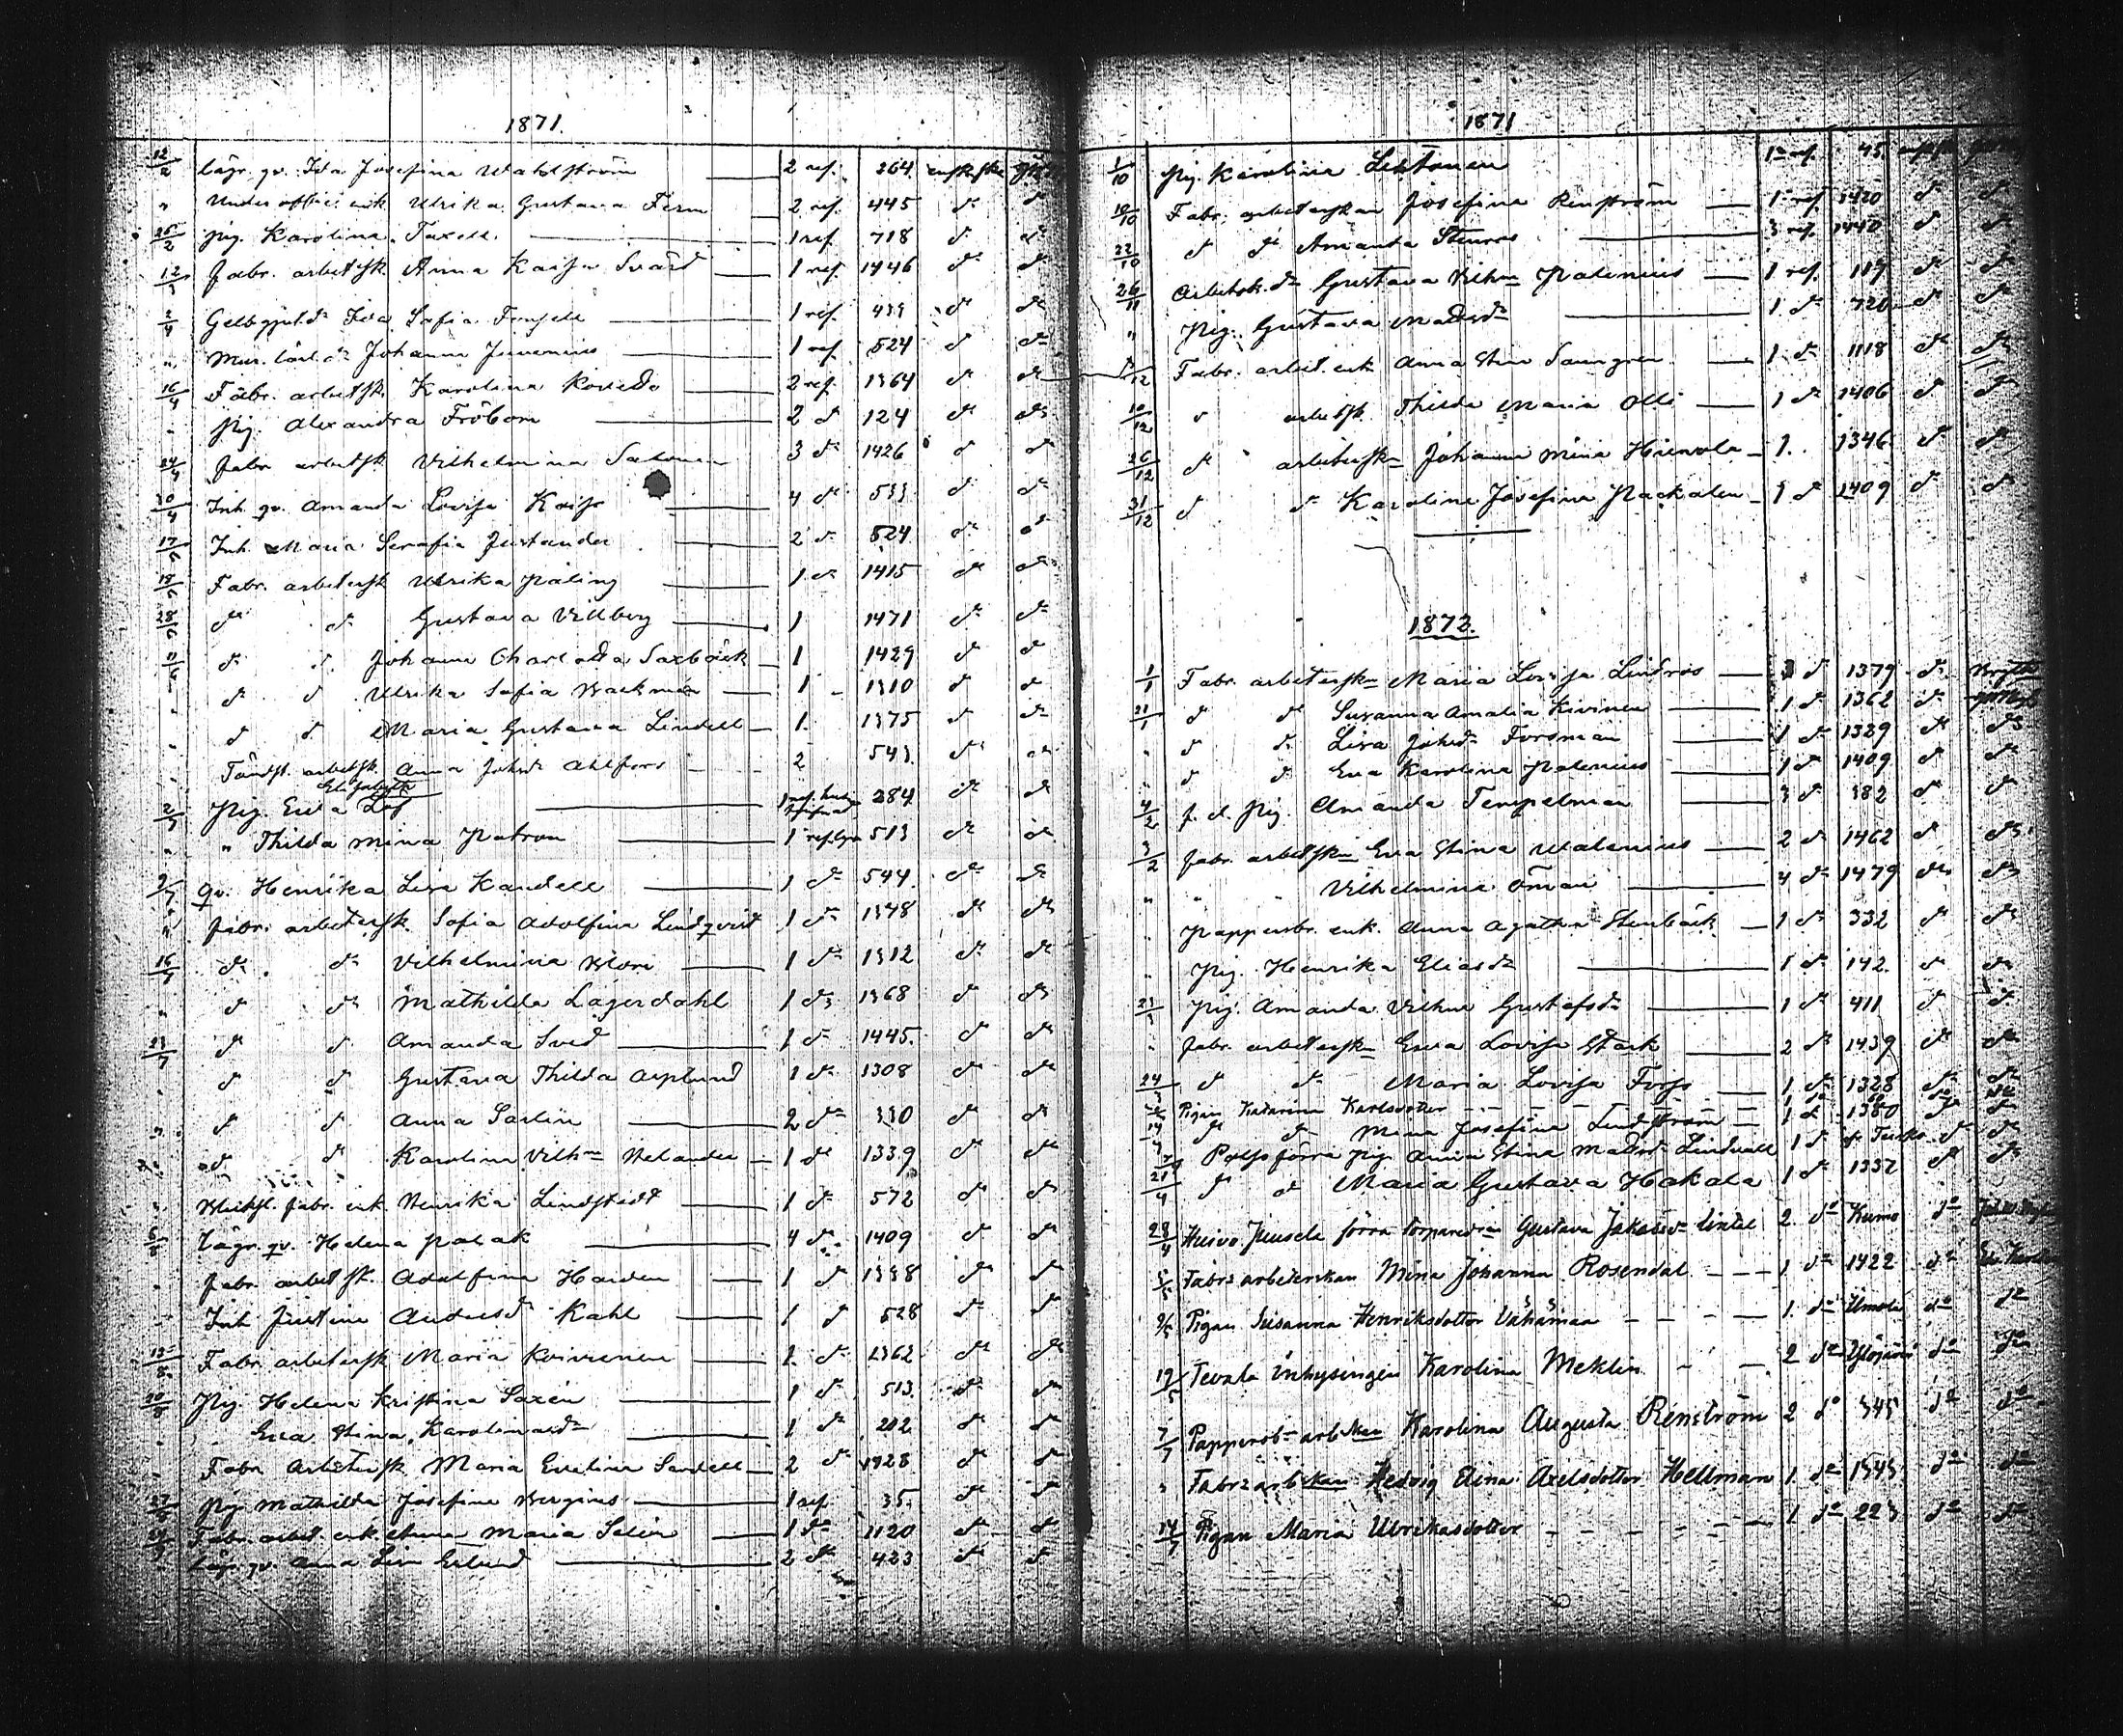 1871.
12/2 Lägr. qv. Ida Josefina Wahlström 2 ref. 264.
" Under offic. enk. Ulrika Gustava Fern 2 ref. 445 do do
25/2 Pig. Karolina Taxell 1 ref 718 do do
12/3 Fabr. arbetsk. Anna Kaisa Svärd 1 ref. 1446 do do
2/4 Ida Sofia 1 ref. 439 do do
" Johanna Juvenius 1 ref 524 do do
16/4 Fabr. arbetsk. Karolina 2 ref. 1364 do do
" Pig. Alexandra Fröbom 2 do 124 do do
24/4 Fabr arbetsk. Vilhelmina Salonen 3 do 1426 do do
30/4 Inh. qv. Amanda Lovisa 4 do 533 do do
17/6 Inh. Maria Serafia Justander 2 do 524 do do
18/6 Fabr. arbetersk Ulrika Påling 1 do 1415 do do
28/6 do do Gustava Villberg 1 1471 do do
do do Johanna Charlotta Saxbäck 1 1429 do do
" do do Ulrika Sofia Backman 1 - 1310 do do
" do do Maria Gustava Lindell 1. 1375 do do
" Tändst. arbetsk. Anna Johsdr Ahlfors 2 543. do do
Elisabeth
2/7 Pig. Eva Löf 284 do do
" " Thilda Mina Patron 513 do do
9/7 qv. Henrika Lisa Kandell 1 do 544 do do
" Fabr. arbetersk. Sofia Adolfina Lindqvist 1 do 1348 do do
16/7 do do Vilhelmina 1 do 1312 do do
" do do Mathilda Lagerdahl 1 do 1368 do do
23/7 do do Amanda Sved 1 do 1445. do do
" do do Gustava Thilda Asplund 1 do 1308 do do
" do do Anna Sarlin 2 do 330 do do
" do do Karolina Vilhna Helander 1 do 1339 do do
" fabr. enk. Henrika Lindstedt 1 do 572 do do
6/8 Lägr. qv. Helena Polak 4 do 1409 do do
" Fabr. arbetsk. Adolfina Haiden 1 do 1338 do do
Inh Justina Andersdr Kahl 1 do 528 do do
13/8 Fabr. arbetersk Maria Koivunen 1 do 1362 do do
20/8 Pig. Helena Kristina Saxén 1 do 513 do do
" Eva Stina Karolinasdr 1 do 202 do do
" Fabr. Arbetersk Maria Evelina Sandell 2 do 1428 do do
27/8 Pig. Mathilda Josefina Bergius 1 ref 35. do do
Fabr. arbet. enk. Anna Maria Selin 1 do 1120 do do
Lägr. qv. Anna Lisa Erlund 2 do 423 do do
1871
1/10 Pig. Karolina Lehtonen 1 ref. 45.
10/10 Fabr. arbeterskan Josefina Renström 1 ref 1420 do do
22/10 do do Amanda Stenroos 3 ref. 1440 do do
26/11 Arbetsk. dr Gustava Vilhna Palenius 1 ref. 119 do do
" Pig. Gustava Mattsdr 1 do 720 do do
Fabr. arbet. enk Anna Stina 1 do 1118 do do
10/12 " arbetsk. Thilda Maria Olli 1 do 1406 do do
26/12 do arbeterskn Johanna Mina Hirvola 1. 1346 do do
31/12 do do Karolina Josefina Packalen 1 do 1409 do do
1872.
1/1 Fabr. arbeterskn Maria Lovisa Lindroos 3 do 1379 do
21/1 do do Susanna Amalia Kivinen 1 do 1362 do
" do do Lisa Johsdr Forsman 1 do 1329 do do
" do do Eva Karolina Palenius 1 do 1409 do do
4/2 f. d. Pig. Amanda Tempelman 3 do 382 do do
3/2 Fabr. arbetskn Eva Stina Walenius 2 do 1462 do do
" " Vilhelmina Öman 4 do 1479 do do
" Pappersbr. enk. Anna Agatha Stenbäck 1 do 332 do do
" Pig. Henrika Eliasdr 1 do 142. do do
Pig. Amanda Vilhna Gustafsdr 1 do 411 do do
" Fabr. arbeterskn Eva Lovisa Stark 2 do 1439 do do
24/3 do do Maria Lovisa Forss 1 do 1328 do do
Pigan Katarina Karlsdotter 1 do do do
do do Mina Josefina Lindström 1 do 1380 do do
förra pig. Anna Stina Mattsdr Lindvall 1 do do do
21/4 do do Maria Gustava Hakala 1 do 1337 do do
28/4 förra Gustava Jakobsdr Lindel 2 do Kumo do
5/5 Fabrs arbeterskan Mina Johanna Rosendal 1 do 1422 do
9/5 Pigan Susanna Henriksdotter Vähämaa 1. do do do
19/5 Inhysingen Karolina Meklin 2 do Ylöjärvi do do
7/7 Pappersbs arbskan Karolina Augusta Renström 2 do 545 do do
" Fabrs arbskan Hedvig Elina Axelsdotter Hellman 1 do 1545 do do
14/7 Pigan Maria Ulrikasdotter 1 do 223 do do